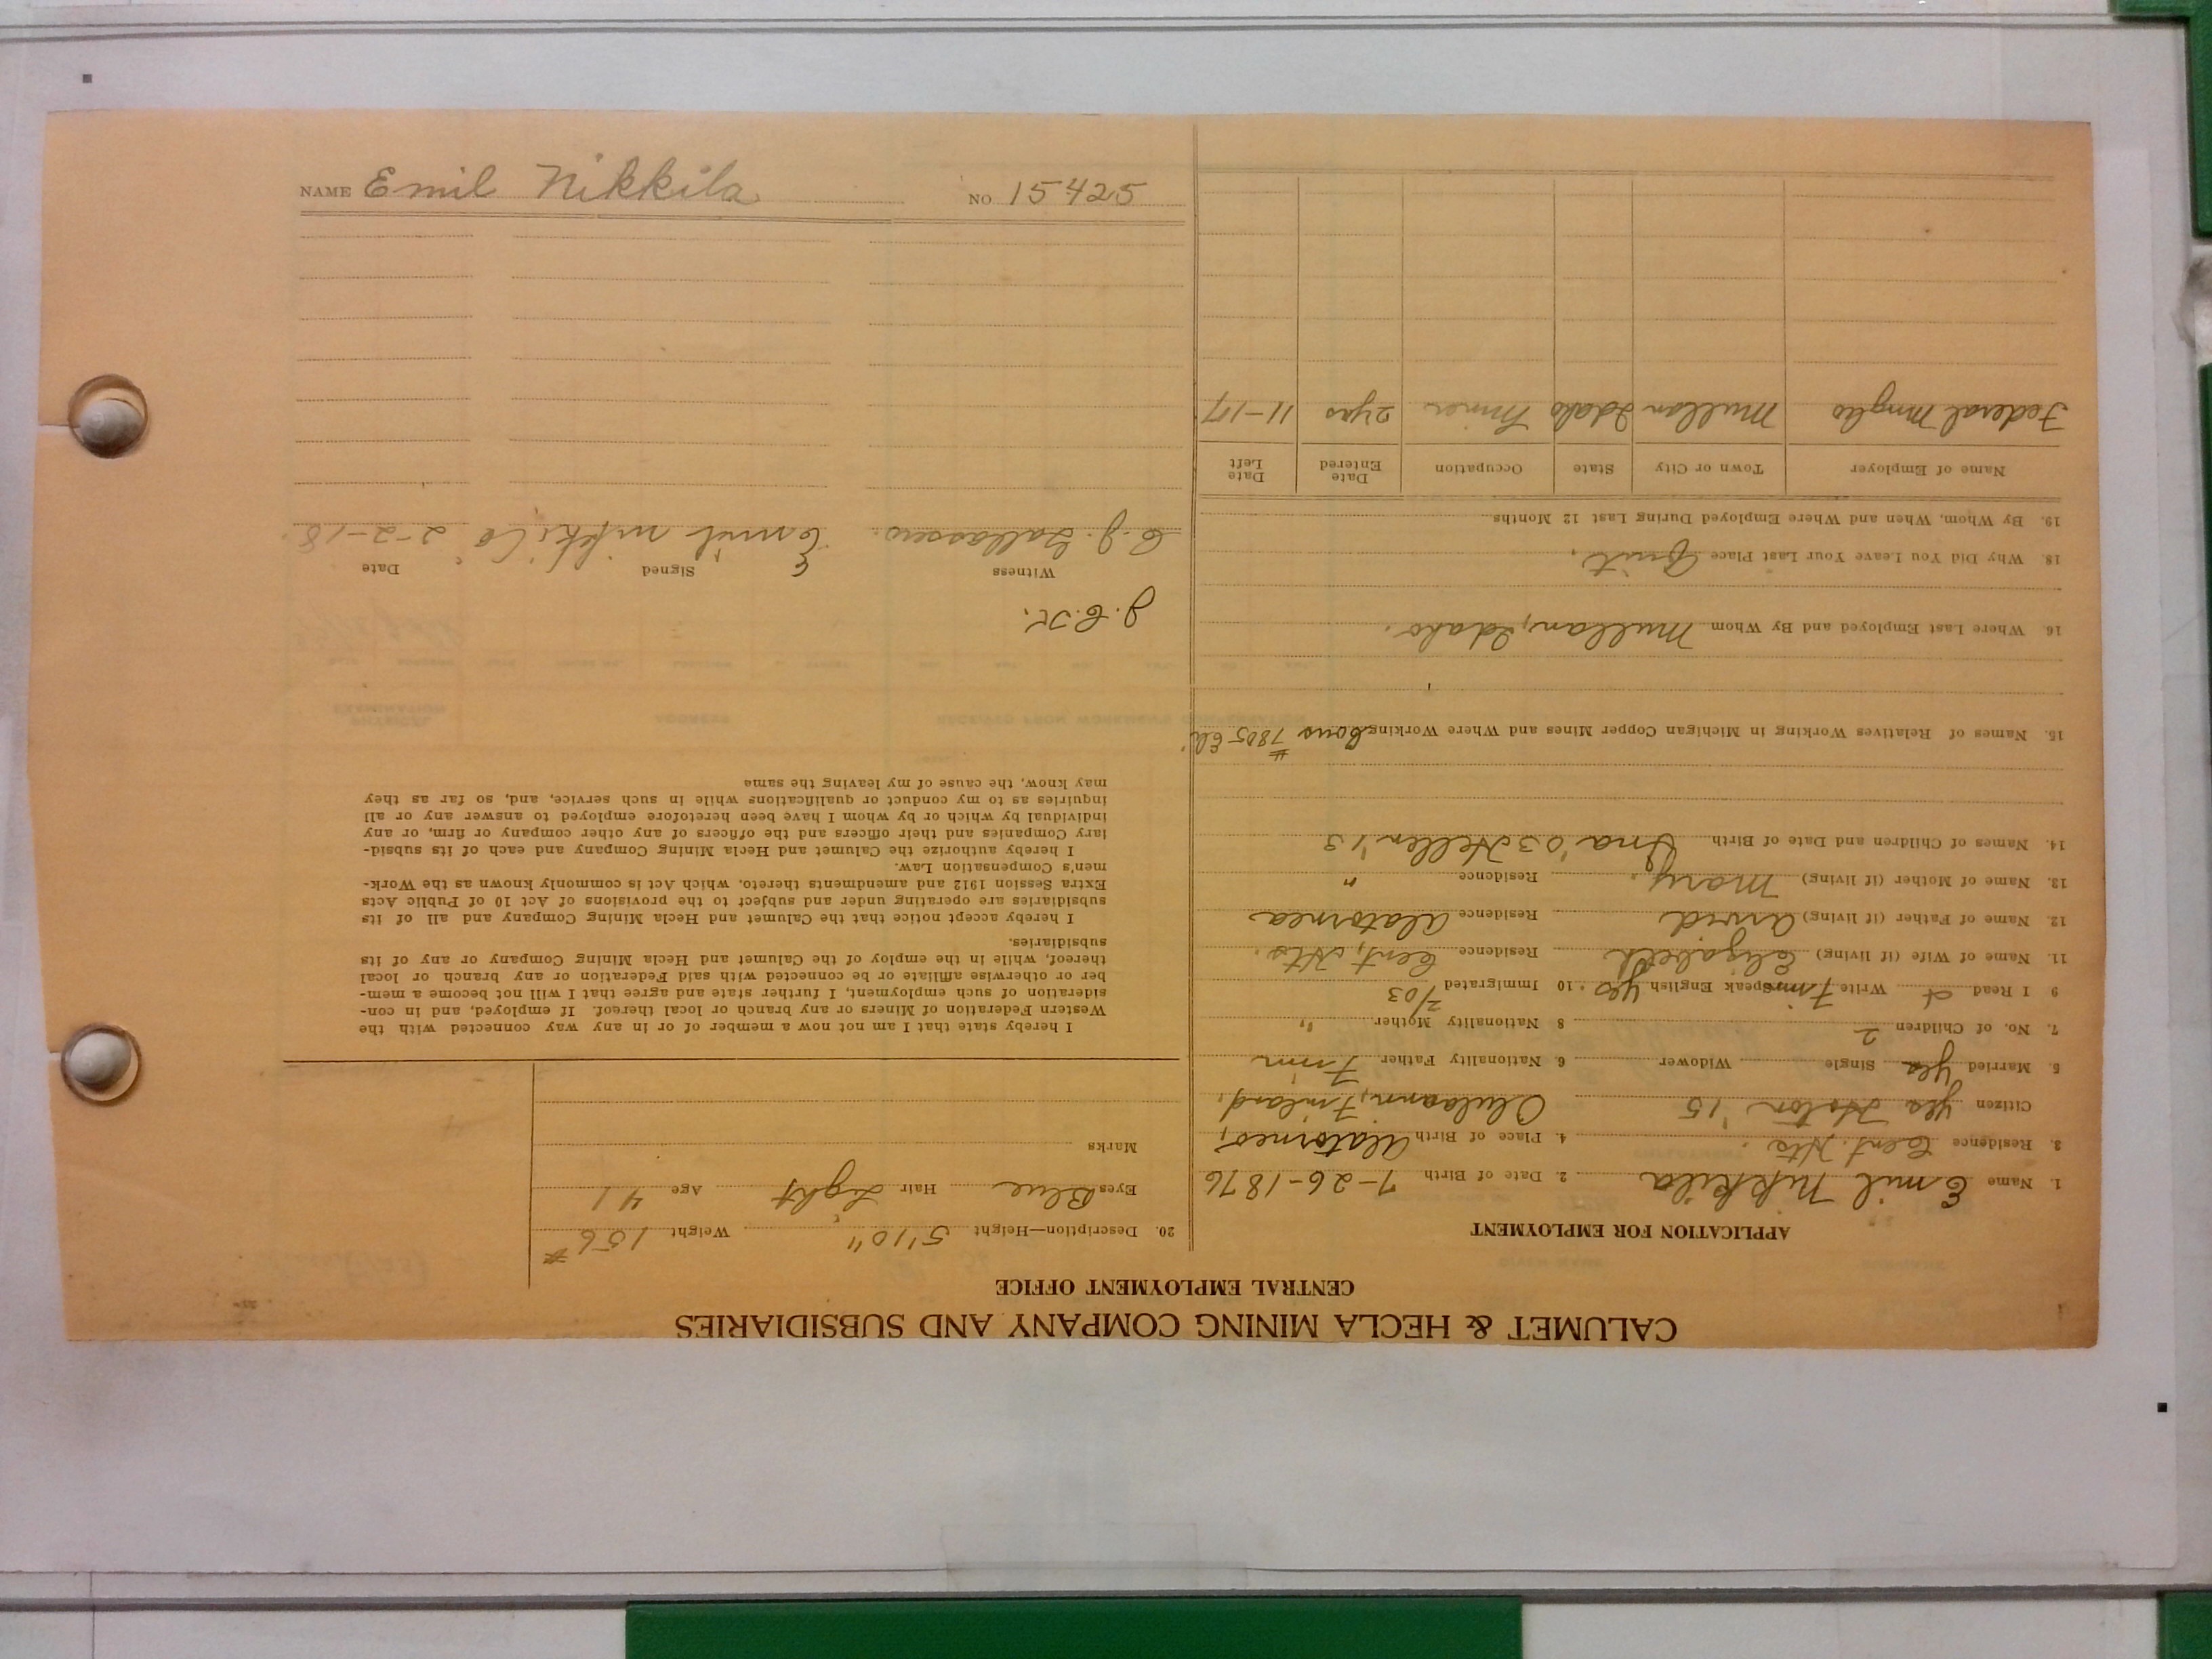 CALUMET & HECLA MINING COMPANY AND SUBSIDIARIES
CENTRAL EMPLOYMENT OFFICE
APPLICATION FOR EMPLOYMENT
1. Name Emil Nikkila 2. Date of Birth 7-26-1876
3. Residence Cent. Hts. 4. Place of Birth Alatornea,
Citizen yes Hoton '15 Finland.
5. Married yes Single Widower 6. Nationality Father Finn
7. No. of Children 2 8 Nationality Mother "
9 I Read & Write Finn Speak English yes. 10 Immigrated 7/03
11. Name of Wife (if living) Elizabeth Residence Cent, Hts.
12. Name of Father (if living) Arvid Residence Alatornea
13. Name of Mother (if living) Mary. Residence "
14. Names of Children and Date of Birth '03 Hellen '13
15. Names of Relatives Working in Michigan Copper Mines and Where Working Cous #7805
16. Where Last Employed and By Whom Mullan, Idaho.
18. Why Did You Leave Your Last Place Quit.
19. By Whom, When and Where Employed During Last 12 Months
Name of Employer Town or City State Occupation Date Entered Date Left
Federal Mullan Idaho Miner 2 yrs 11-17
20. Description—Height 5'10" Weight 156#
Eyes Blue Hair Light Age 41
Marks
I hereby state that I am not now a member of or in any way connected with the
Western Federation of Miners or any branch or local thereof. If employed, and in con-
sideration of such employment, I further state and agree that I will not become a mem-
ber or otherwise affiliate or be connected with said Federation or any branch or local
thereof, while in the employ of the Calumet and Hecla Mining Company or any of its
subsidiaries.
I hereby accept notice that the Calumet and Hecla Mining Company and all of its
subsidiaries are operating under and subject to the provisions of Act 10 of Public Acts
Extra Session 1912 and amendments thereto, which Act is commonly known as the Work-
men's Compensation Law.
I hereby authorize the Calumet and Hecla Mining Company and each of its subsid-
iary Companies and their officers and the officers of any other company or firm, or any
individual by which or by whom I have been heretofore employed to answer any or all
inquiries as to my conduct or qualifications while in such service, and, so far as they
may know, the cause of my leaving the same
Witness Signed Date
Emil nikkila 2-2-18.
NAME Emil Nikkila NO. 15425